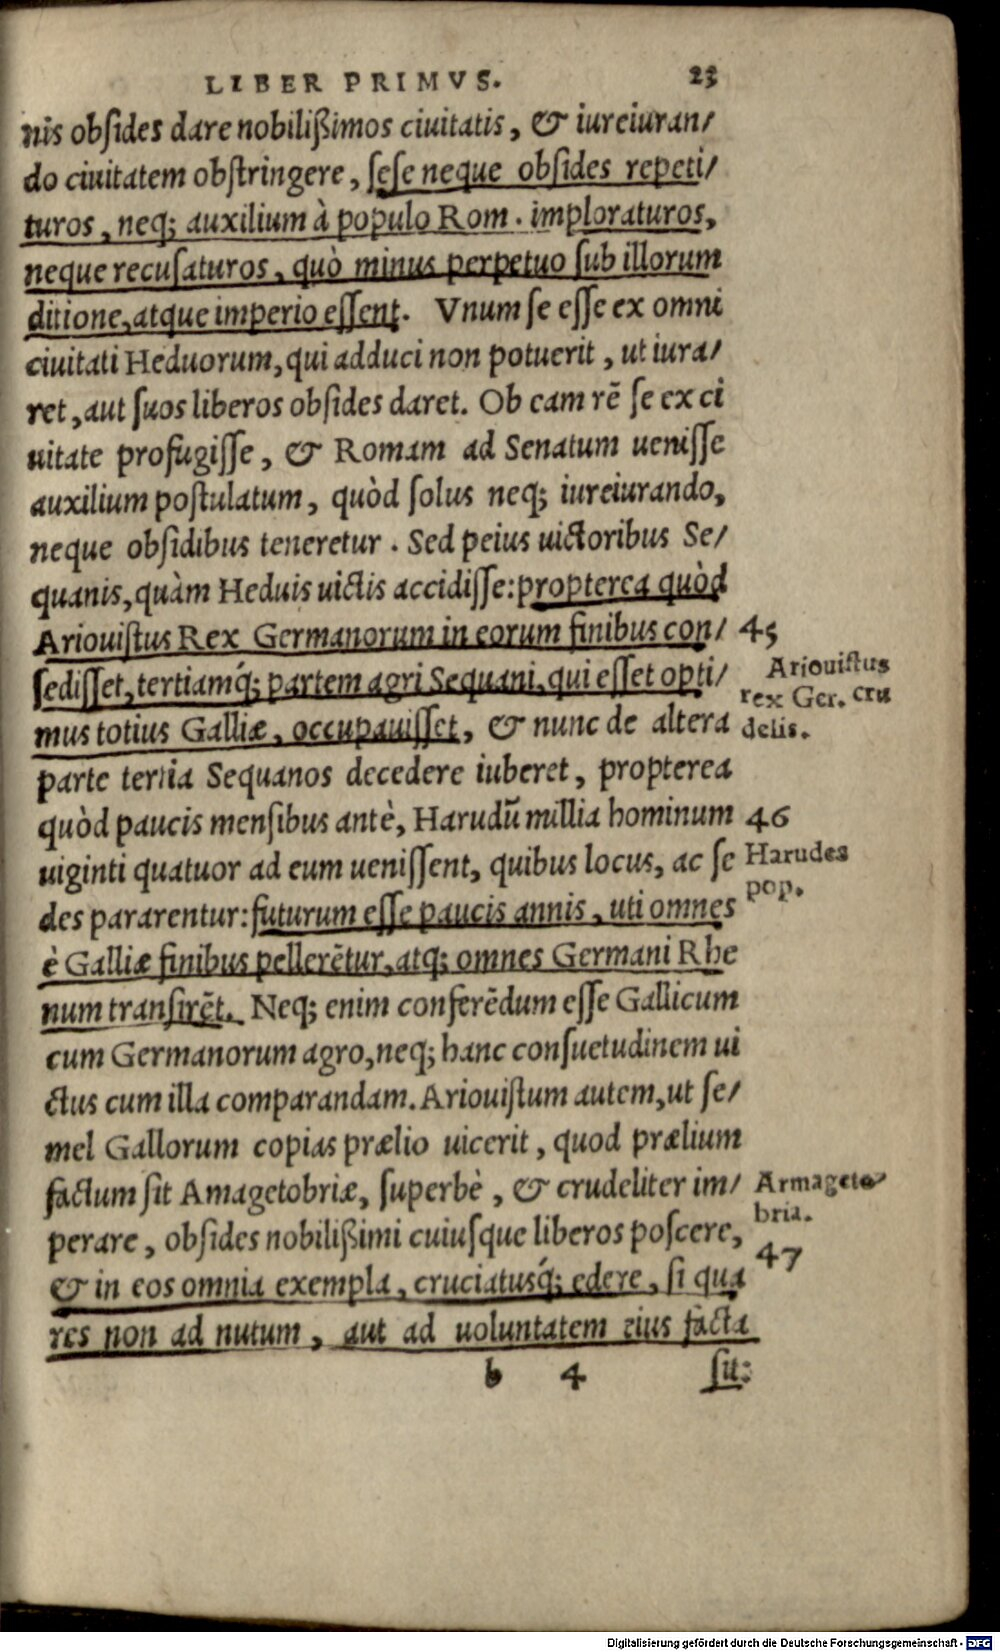 LIBER PRIMVS. 23
nis obſides dare nobilißimos ciuitatis, & iureiuran/
do ciuitatem obſtringere, ſeſe neque obſides repeti/
turos, neq; auxilium à populo Rom. imploraturos,
neque recuſaturos, quò minus perpetuo ſub illorum
ditione, atque imperio eſſent. Vnum ſe eſſe ex omni
ciuitati Heduorum, qui adduci non potuerit, ut iura/
ret, aut ſuos liberos obſides daret. Ob eam rē ſe ex ci
uitate profugiſſe, & Romam ad Senatum ueniſſe
auxilium poſtulatum, quòd ſolus neq; iureiurando,
neque obſidibus teneretur. Sed peius uictoribus Se/
quanis, quàm Heduis uictis accidiſſe: propterea quòd
Ariouiſtus Rex Germanorum in eorum finibus con/ 45
ſediſſet, tertiamq́; partem agri Sequani, qui eſſet opti/
Ariouiſtus
rex Ger. cru
delis.
mus totius Galliæ, occupauiſſet, & nunc de altera
parte tertia Sequanos decedere iuberet, propterea
quòd paucis menſibus antè, Harudū millia hominum 46
uiginti quatuor ad eum ueniſſent, quibus locus, ac ſe
Harudes
pop.
des pararentur: futurum eſſe paucis annis, uti omnes
è Galliæ finibus pellerētur, atq; omnes Germani Rhe
num tranſirēt. Neq; enim conferēdum eſſe Gallicum
cum Germanorum agro, neq; hanc conſuetudinem ui
ctus cum illa comparandam. Ariouiſtum autem, ut ſe/
mel Gallorum copias prælio uicerit, quod prælium
factum ſit Amagetobriæ, ſuperbè, & crudeliter im/
Armageto
bria.
perare, obſides nobilißimi cuiuſque liberos poſcere,
47
& in eos omnia exempla, cruciatusq́; edere, ſi qua
res non ad nutum, aut ad uoluntatem eius facta
b 4 ſit:
Digitalisierung gefördert durch die Deutsche Forschungsgemeinschaft - DFG